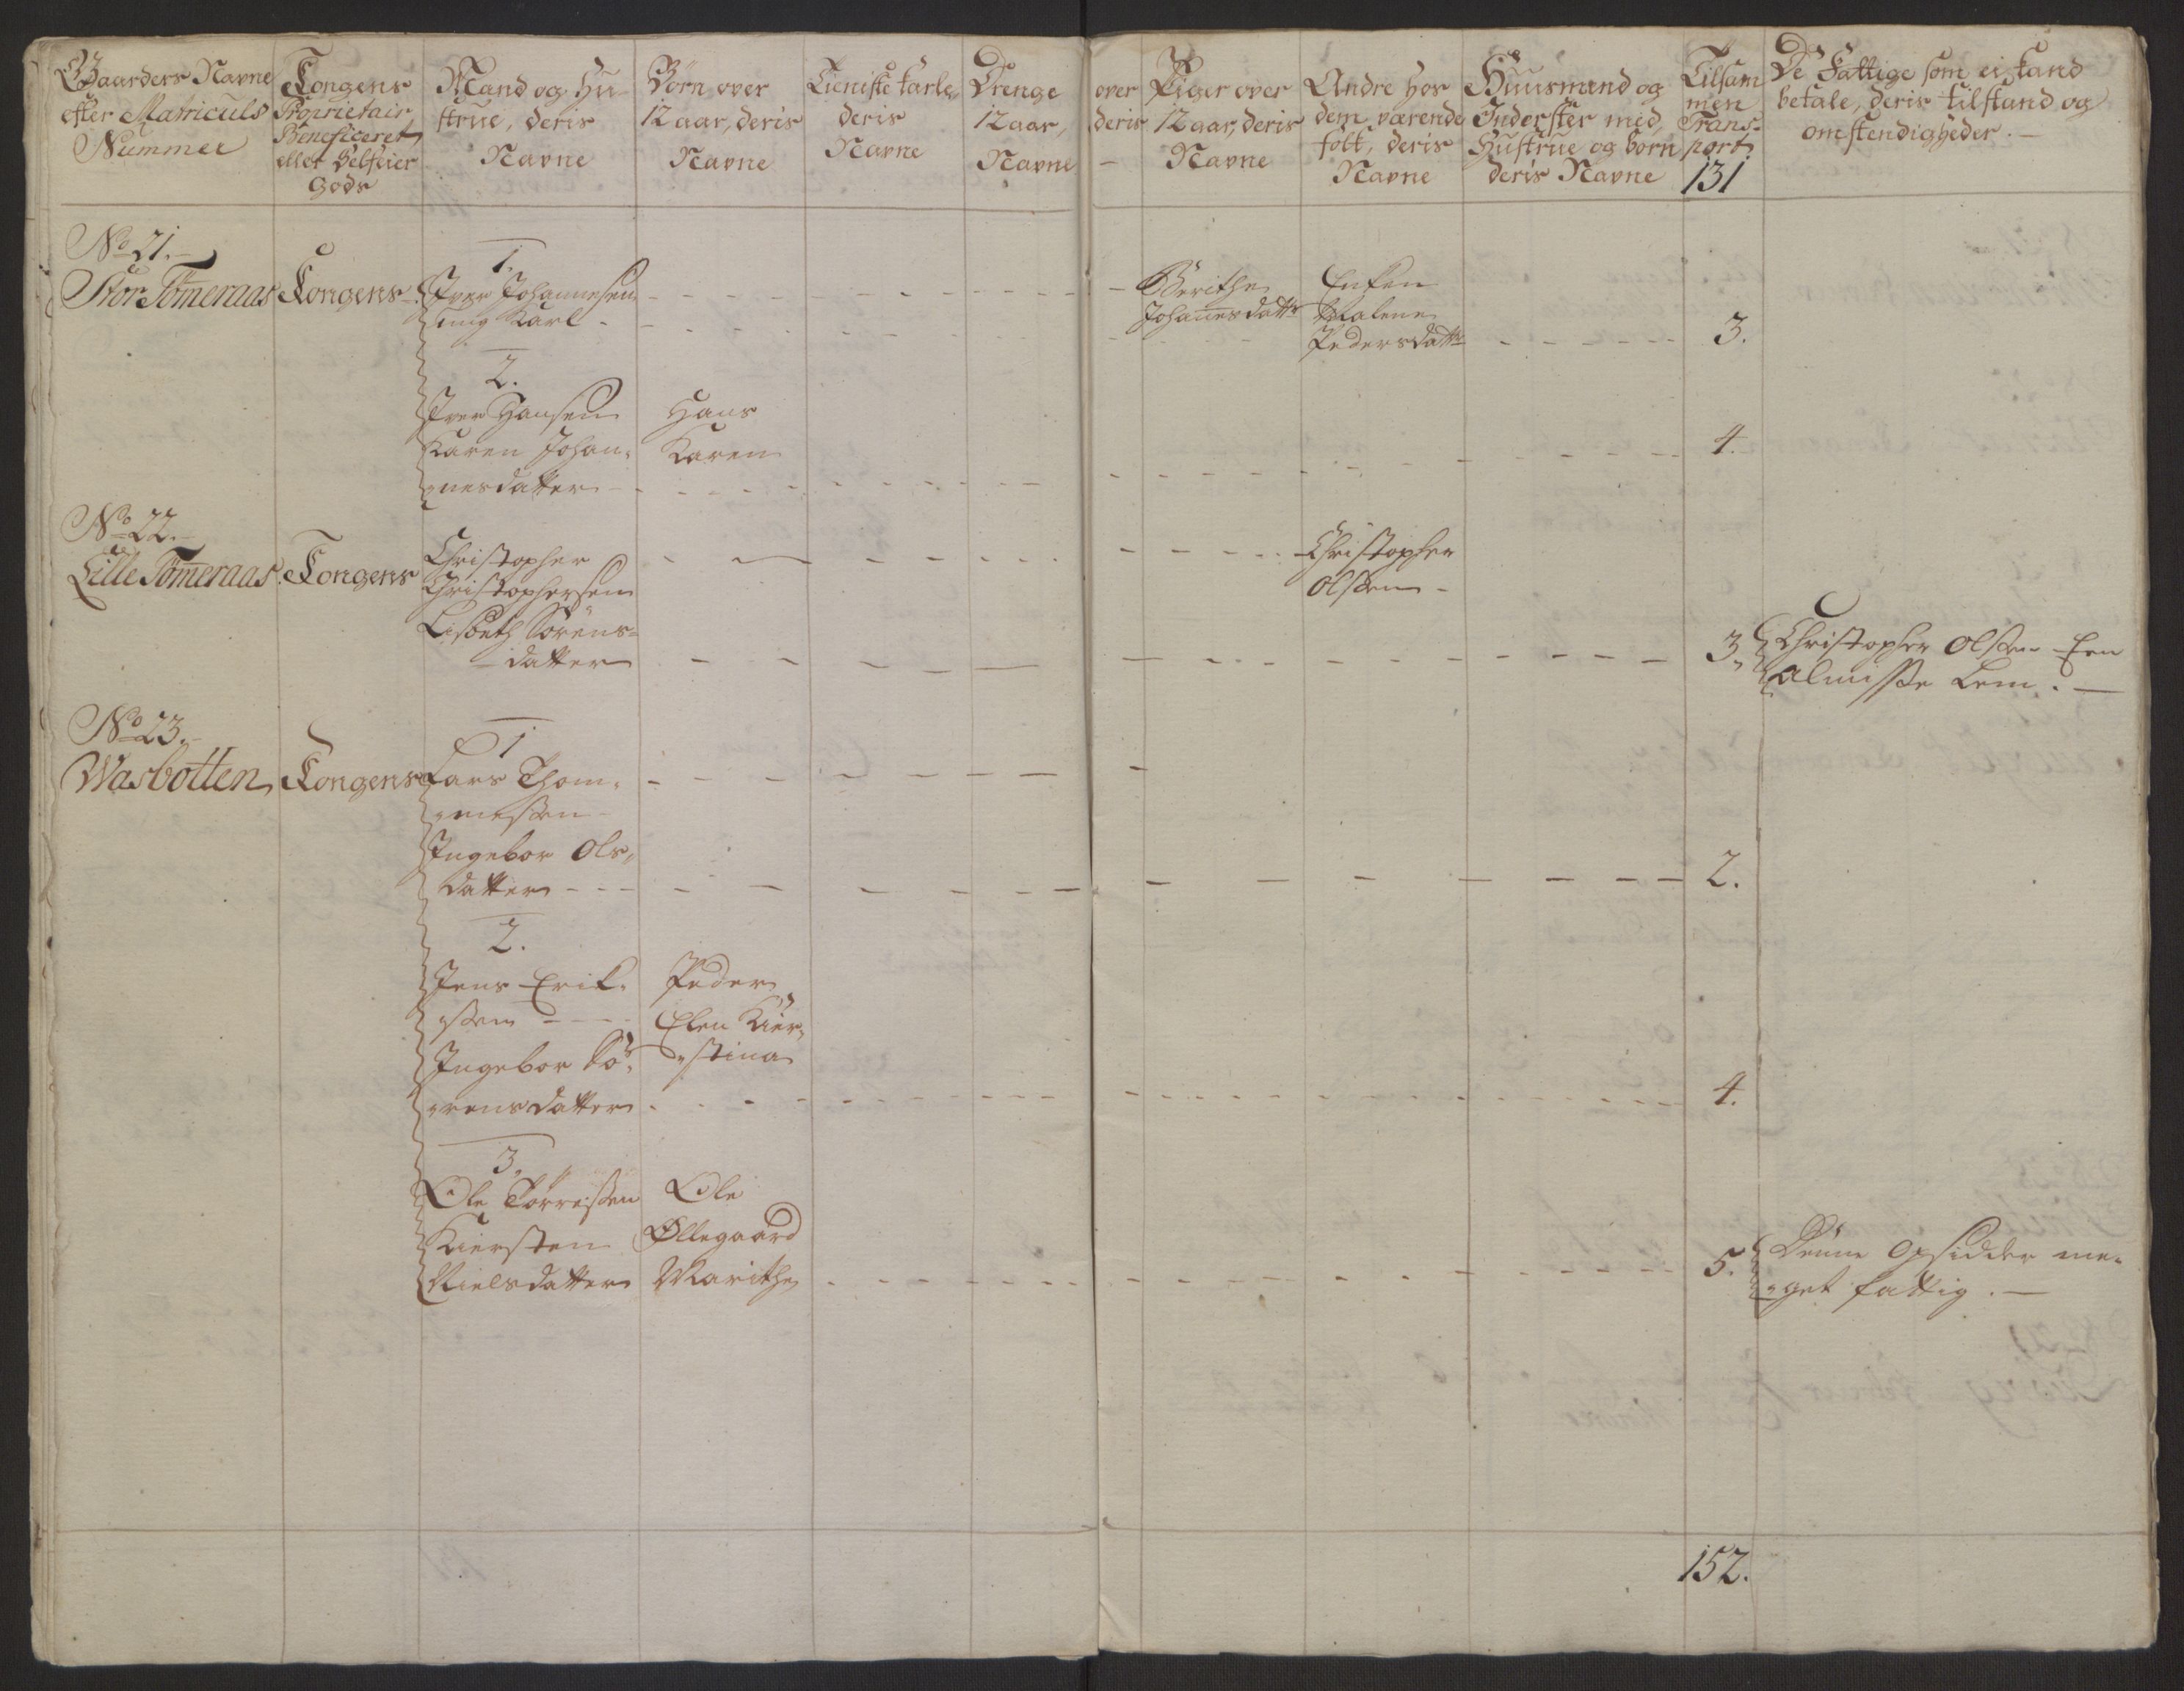 Gaarders Navne
efter Matriculs
Nummer
Kongens
Proprietair
Beneficeret
eller Selfeier
Gods
Mand og Hu-
strue, deris
Navne
Börn over
12 aar, deris
Navne
Tieniste Karle,
deris
Navne
Drenge over
12 aar, deris
Navne –
Piger over
12 aar, deris
Navne
Andre hos
dem værende
folk, deris
Navne
Huusmænd og
Inderster med
Hustrue og born
deris Navne
Tilsam
men
Trans-
port
131
De Fattige som ei kand
betale, deris tilstand og
omstendigheder. –
No 21. –
Stor Tømeraas Kongens
1.
Iver Johannesen
ung Karl -
Berithe
Johanesdattr
Enken
Malene
Pedersdattr
3.
2.
Iver Hansen
Karen Johan-
nesdatter
Hans
Karen
4.
No 22. –
Lille Tømeraas Kongens
Christopher
Christophersen
Lisbeth Sörens-
datter
Christopher
Olsen -
3.
Christopher Olsen Een
Almisse Lem. –
No 23. –
Wasbotten Kongens
1
Lars Thom-
mesen
Ingebor Ols-
datter - - -
2.
2.
Jens Erik-
sen - - -
Ingebor Sö-
rensdatter
Peder
Elen Kier-
stina
4.
3.
Ole Törresen
Kiersten
Nielsdatter
Ole
Øllegaard
Marithe
5.
Denne Opsidder me-
get fattig. –
152.